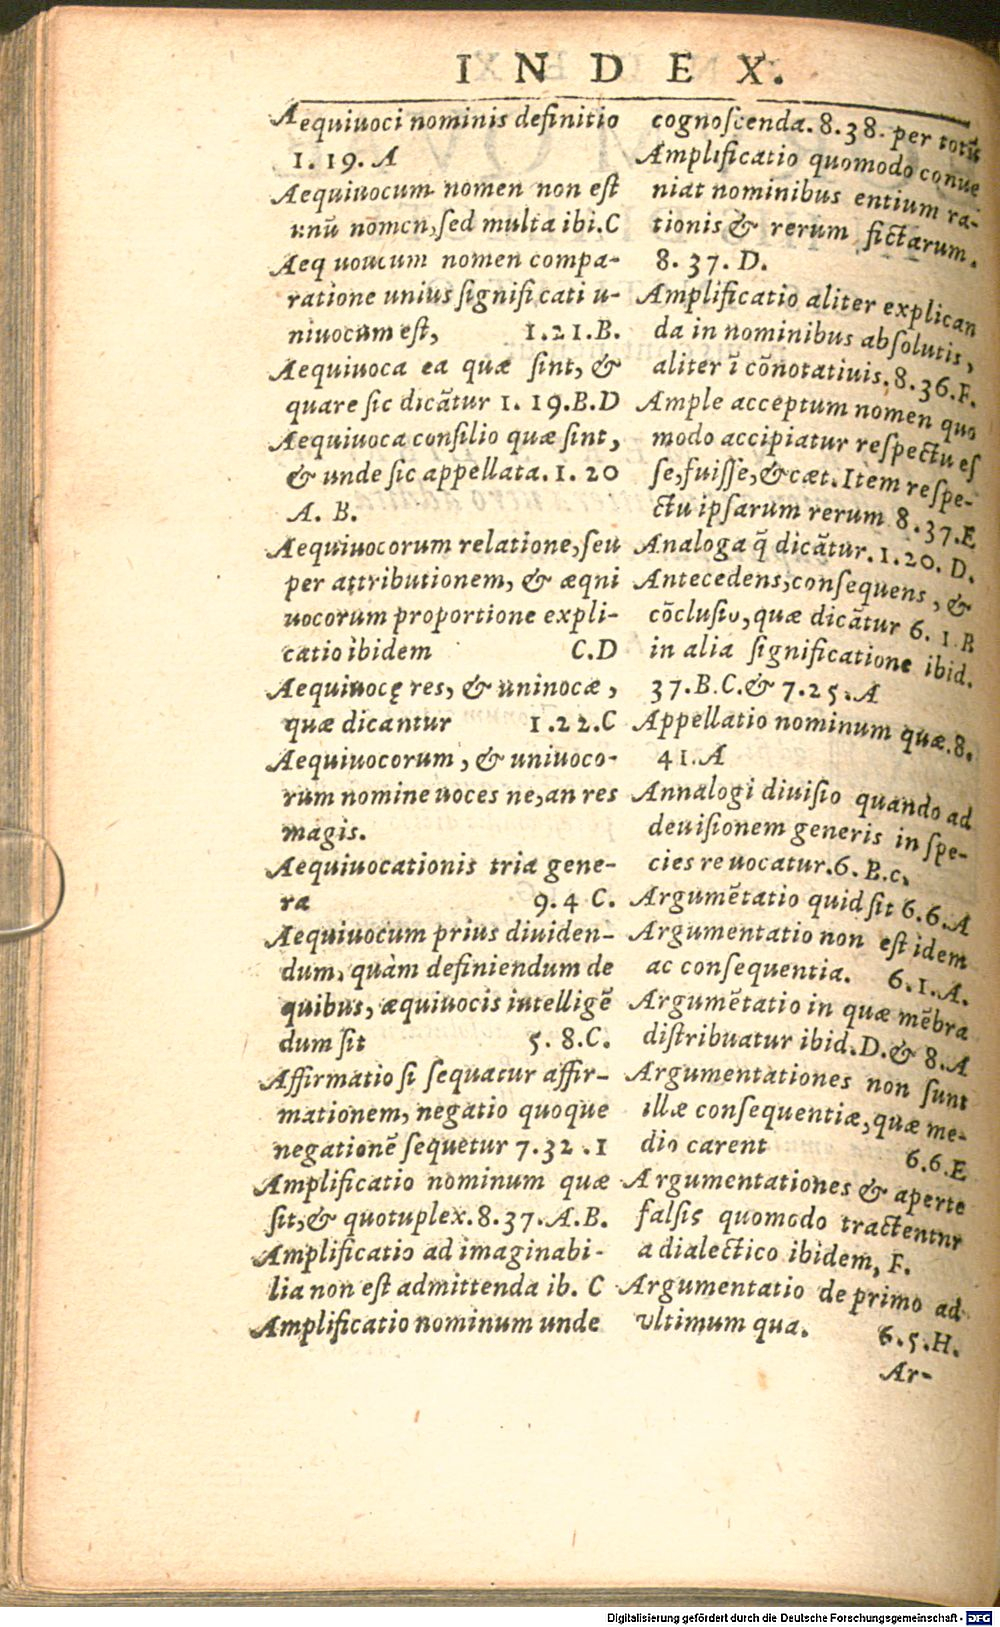 INDEX.
Aequiuoci nominis definitio
1. 19. A
Aequiuocum nomen non est
unū nomen, sed multa ibi. C
Aeq uocum nomen compa-
ratione unius signifi cati u-
niuocum est, 1.21.B.
Aequiuoca ea quæ sint, &
quare sic dicātur 1. 19.B.D
Aequiuoca consilio quæ sint,
& unde sic appellata. 1. 20
A. B.
Aequiuocorum relatione, seu
per attributionem, & æqni
uocorum proportione expli-
catio ibidem C.D
Aequiuocę res, & uninocæ,
quæ dicantur 1.22.C
Aequiuocorum, & uniuoco-
rum nomine uoces ne, an res
magis.
Aequiuocationis tria gene-
ra 9.4 C.
Aequiuocum prius diuiden-
dum, quàm definiendum de
quibus, æquiuocis intelligē
dum sit 5. 8.C.
Affirmatio si sequatur affir-
mationem, negatio quoque
negationē sequetur 7.32.1
Amplificatio nominum quæ
sit, & quotuplex. 8.37.A.B.
Amplificatio ad imaginabi-
lia non est admittenda ib. C
Amplificatio nominum unde
cognoscenda. 8.38. per totū
Amplificatio quomodo conue
niat nominibus entium ra-
tionis & rerum fictarum.
8. 37. D.
Amplificatio aliter explican
da in nominibus absolutis,
aliter ī cōnotatiuis. 8.36.F.
Ample acceptum nomen quo
modo accipiatur respectu es
se, fuisse, & cæt. Item respe-
ctu ipsarum rerum 8.37.E
Analoga q̄ dicātur. 1.20. D.
Antecedens, consequens, &
cōclusio, quæ dicātur 6. 1.B
in alia significatione ibid.
37.B.C. & 7.25.A
Appellatio nominum quæ. 8.
41.A
Annalogi diuisio quando ad
deuisionem generis in spe-
cies reuocatur. 6. B.c.
Argumētatio quid sit 6.6.A
Argumentatio non est idem
ac consequentia. 6.1.A.
Argumētatio in quæ mēbra
distribuatur ibid. D. & 8.A
Argumentationes non sunt
illæ consequentiæ, quæ me-
dio carent 6.6.E
Argumentationes & aperte
falsis quomodo tractentnr
a dialectico ibidem, F.
Argumentatio de primo ad
ultimum qua. 6.5.H.
Ar-
Digitalisierung gefördert durch die Deutsche Forschungsgemeinschaft - DFG